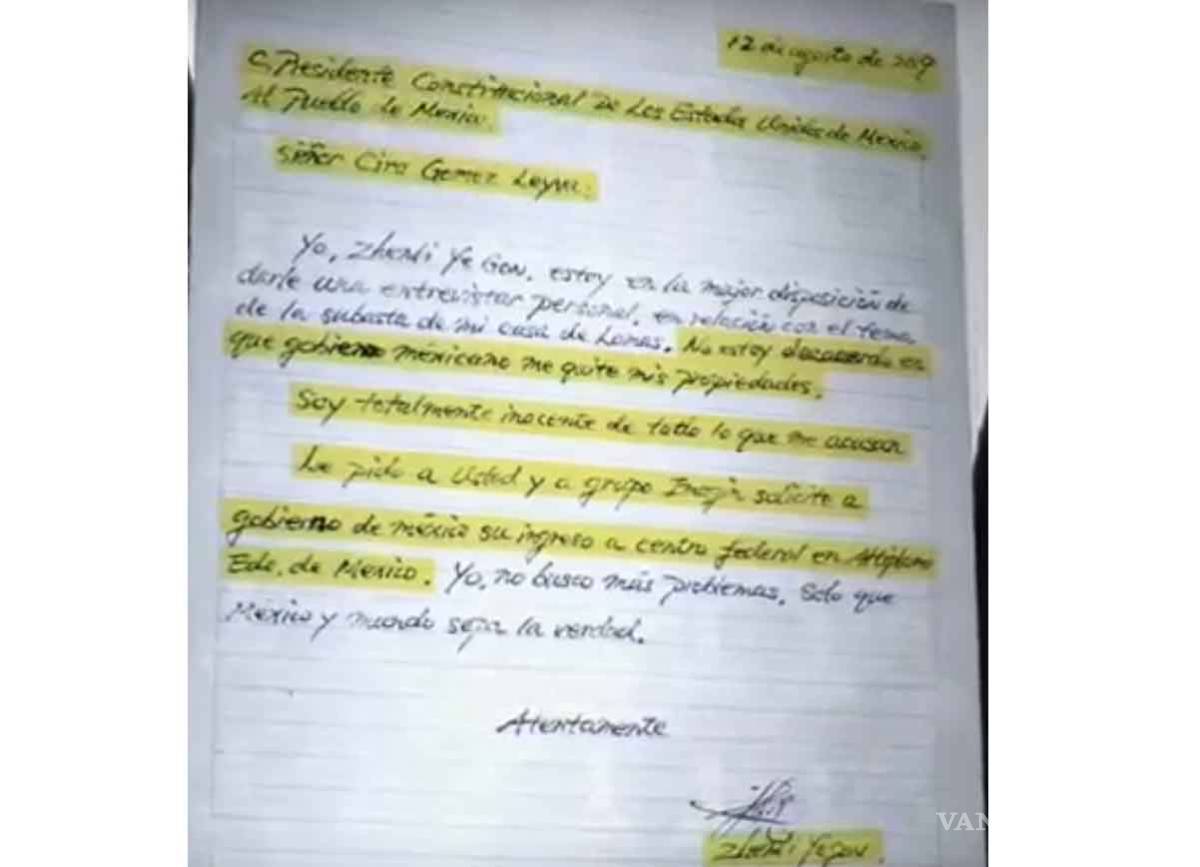 12 de agosto de 2019
C. Presidente Constitucional De Los Estados Unidos de Mexico.
Al Pueblo de Mexico.
Señor Ciro Gomez Leyva.
Yo, Zhenli Ye Gon, estoy en la mejor disposición de
darle una entrevistar personal, en relación con el tema
de la subasta de mi casa de Lomas. No estoy deacuerdo en
que gobierno méxicano me quite mis propiedades.
Soy totalmente inocente de todo lo que me acusan
Le pido a Usted y a grupo Imagin solicite a
gobierno de méxico su ingreso a centro federal en Altiplano
Edo. de Mexico. Yo, no busco más problemas. Solo que
México y mundo sepa la verdad.
Atentamente
Zhenli Ye Gon.
VAN